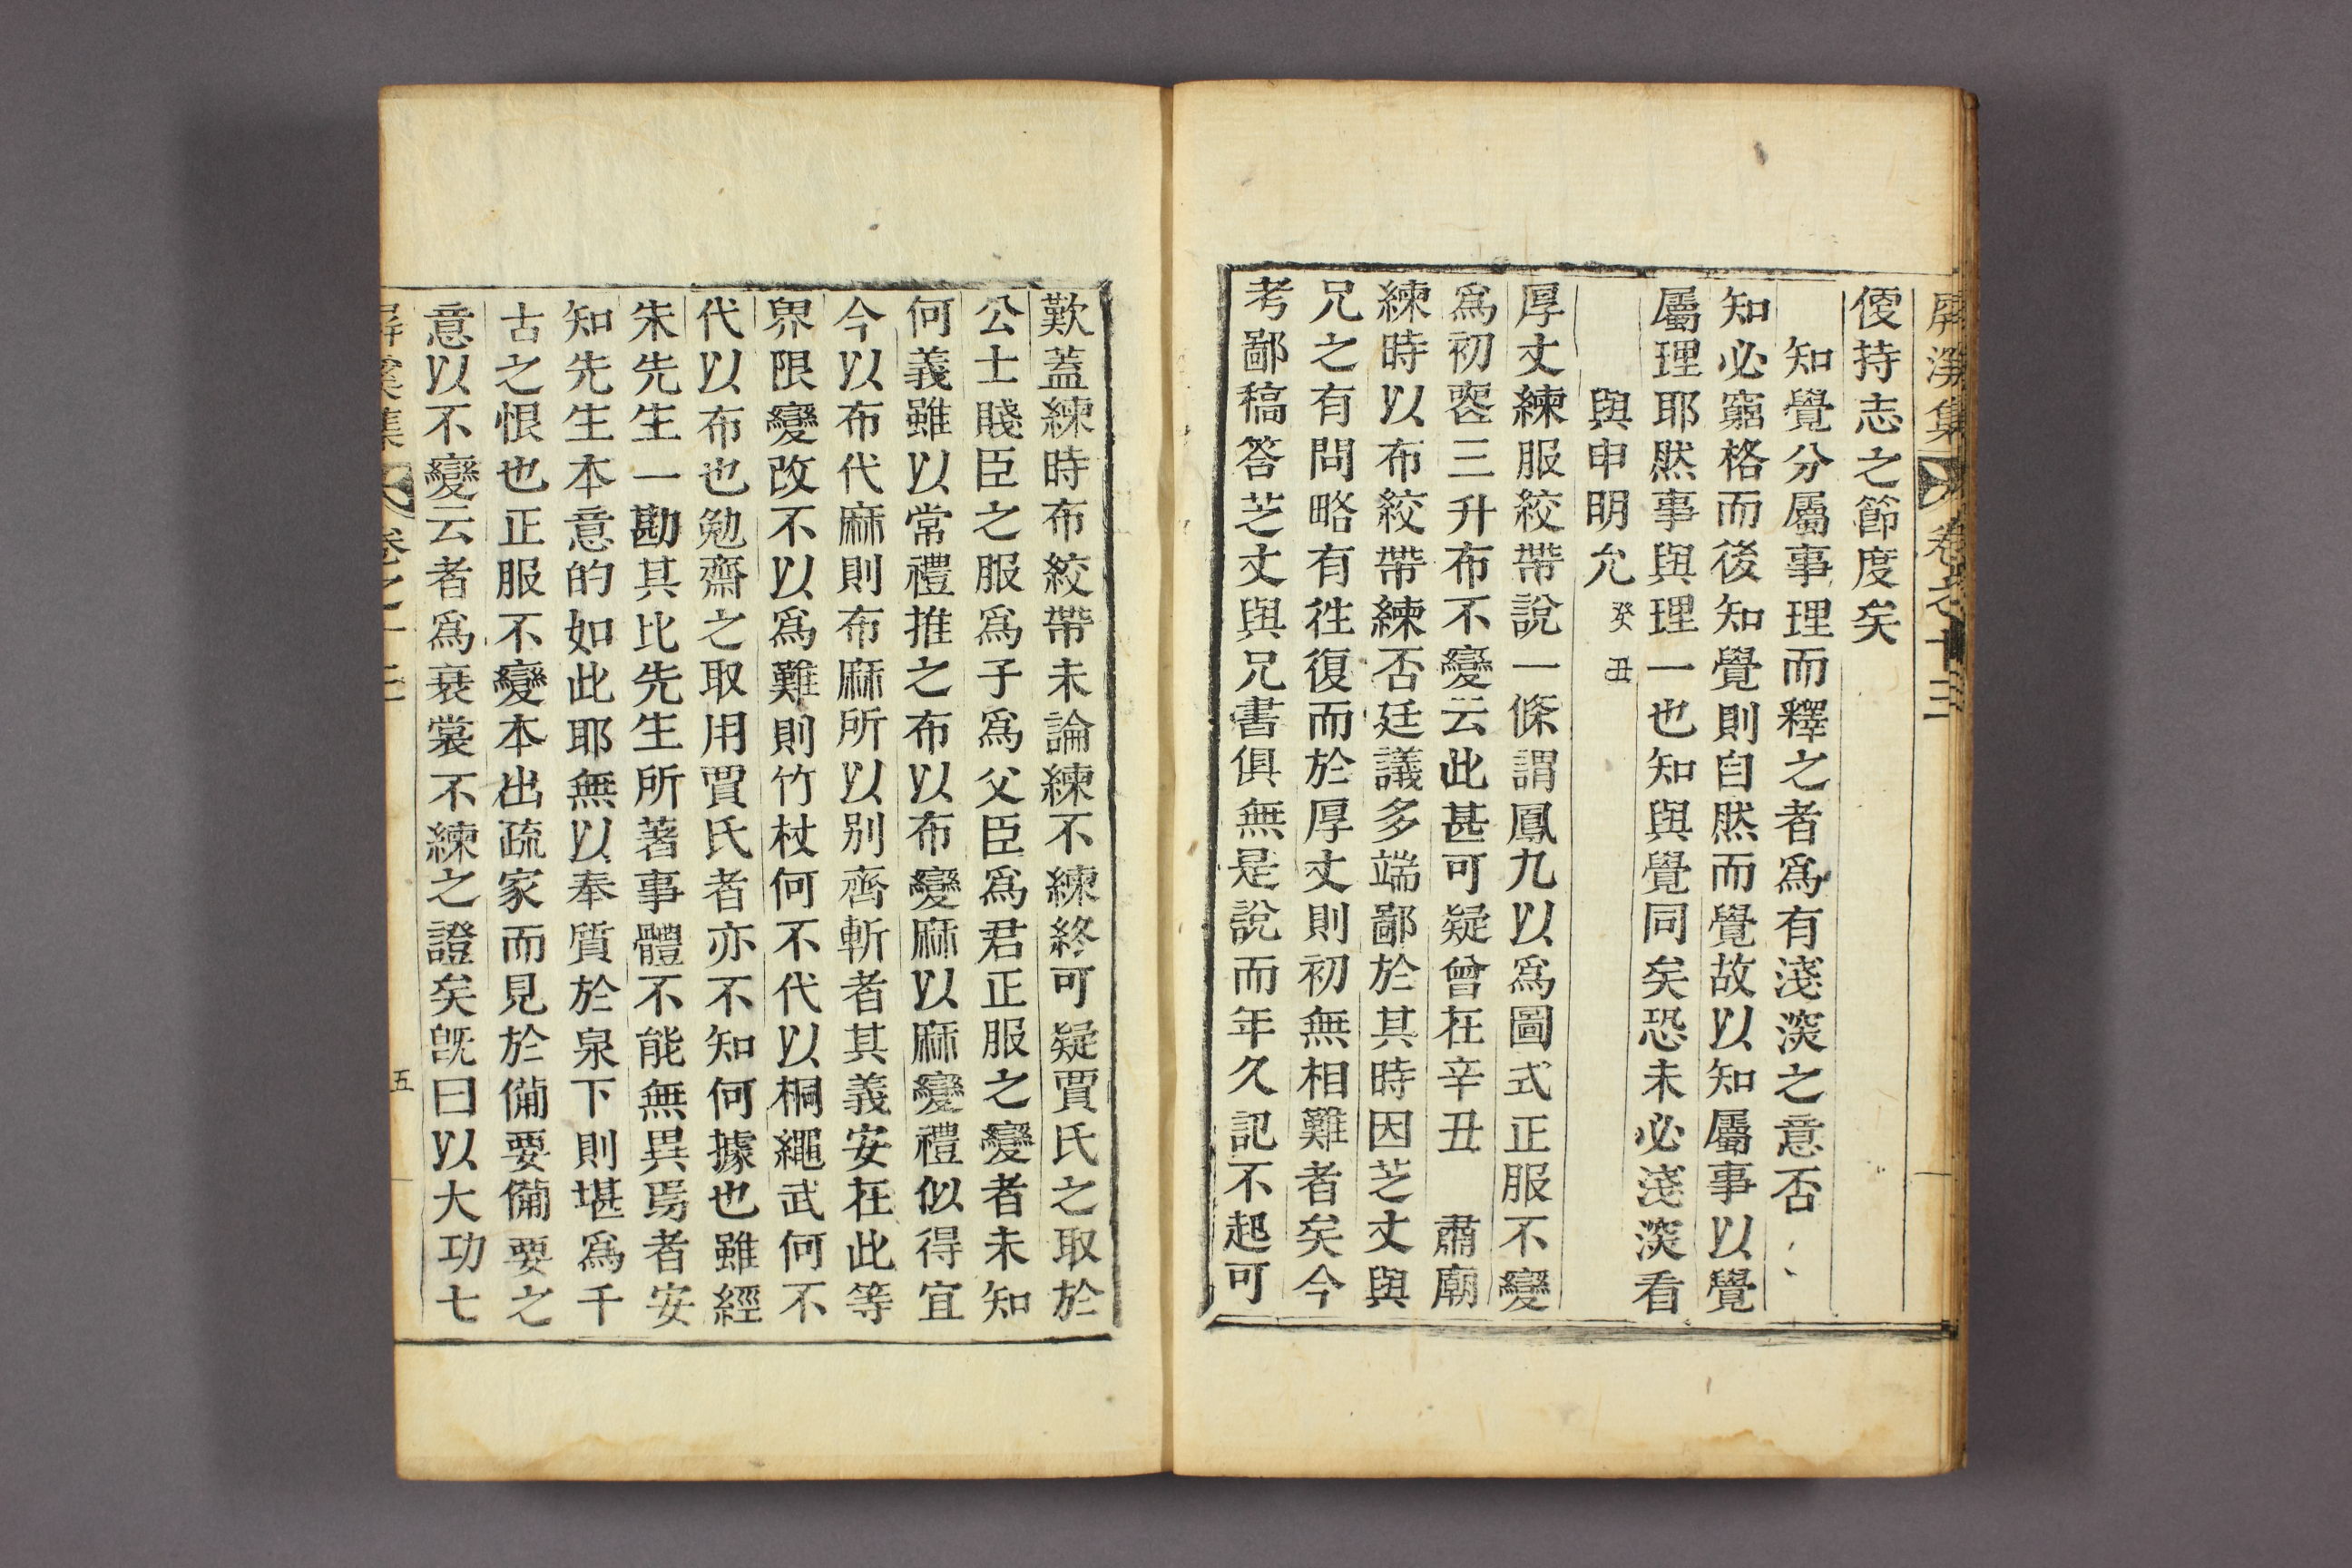 屛溪集 卷之十三
便持志之節度矣
知覺分屬事理而釋之者爲有淺深之意否
知必窮格而後知覺則自然而覺故以知屬事以覺
屬理耶然事與理一也知與覺同矣恐未必淺深看
與申明允 癸丑
厚丈練服絞帶說一條謂鳳九以爲圖式正服不變
爲初喪三升布不變云此甚可疑曾在辛丑 肅廟
練時以布絞帶練否廷議多端鄙於其時因芝丈與
兄之有問略有往復而於厚丈則初無相難者矣今
考鄙稿答芝丈與兄書俱無是說而年久記不起可
歎蓋練時布絞帶未論練不練終可疑賈氏之取於
公士賤臣之服爲子爲父臣爲君正服之變者未知
何義雖以常禮推之布以布變麻以麻變禮似得宜
今以布代麻則布麻所以別齊斬者其義安在此等
界限變改不以爲難則竹杖何不代以桐繩武何不
代以布也勉齋之取用賈氏者亦不知何據也雖經
朱先生一勘其比先生所著事體不能無異焉者安
知先生本意的如此耶無以奉質於泉下則堪爲千
古之恨也正服不變本出疏家而見於備要備要之
意以不變云者爲衰裳不練之證矣旣曰以大功七
屛溪集 卷之十三 五